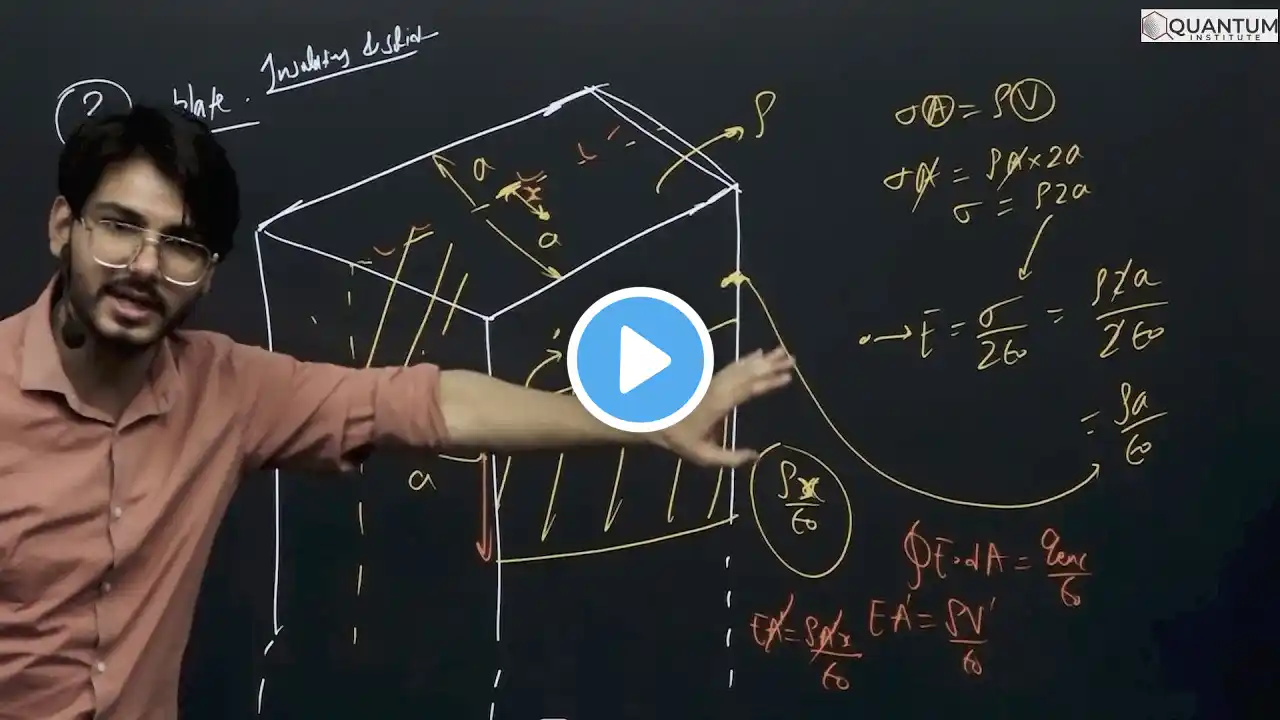 QUANTUM
INSTITUTE
2 plate.
a
x
a
ρ
a
σA = ρV
σA = ρA×2a
σ = ρ2a
E = σ/2ε₀ = ρ2a/2ε₀
= ρa/ε₀
ρx/ε₀
∮E·dA = q enc/ε₀
EA' = ρV'/ε₀
EA' = ρA'x/ε₀